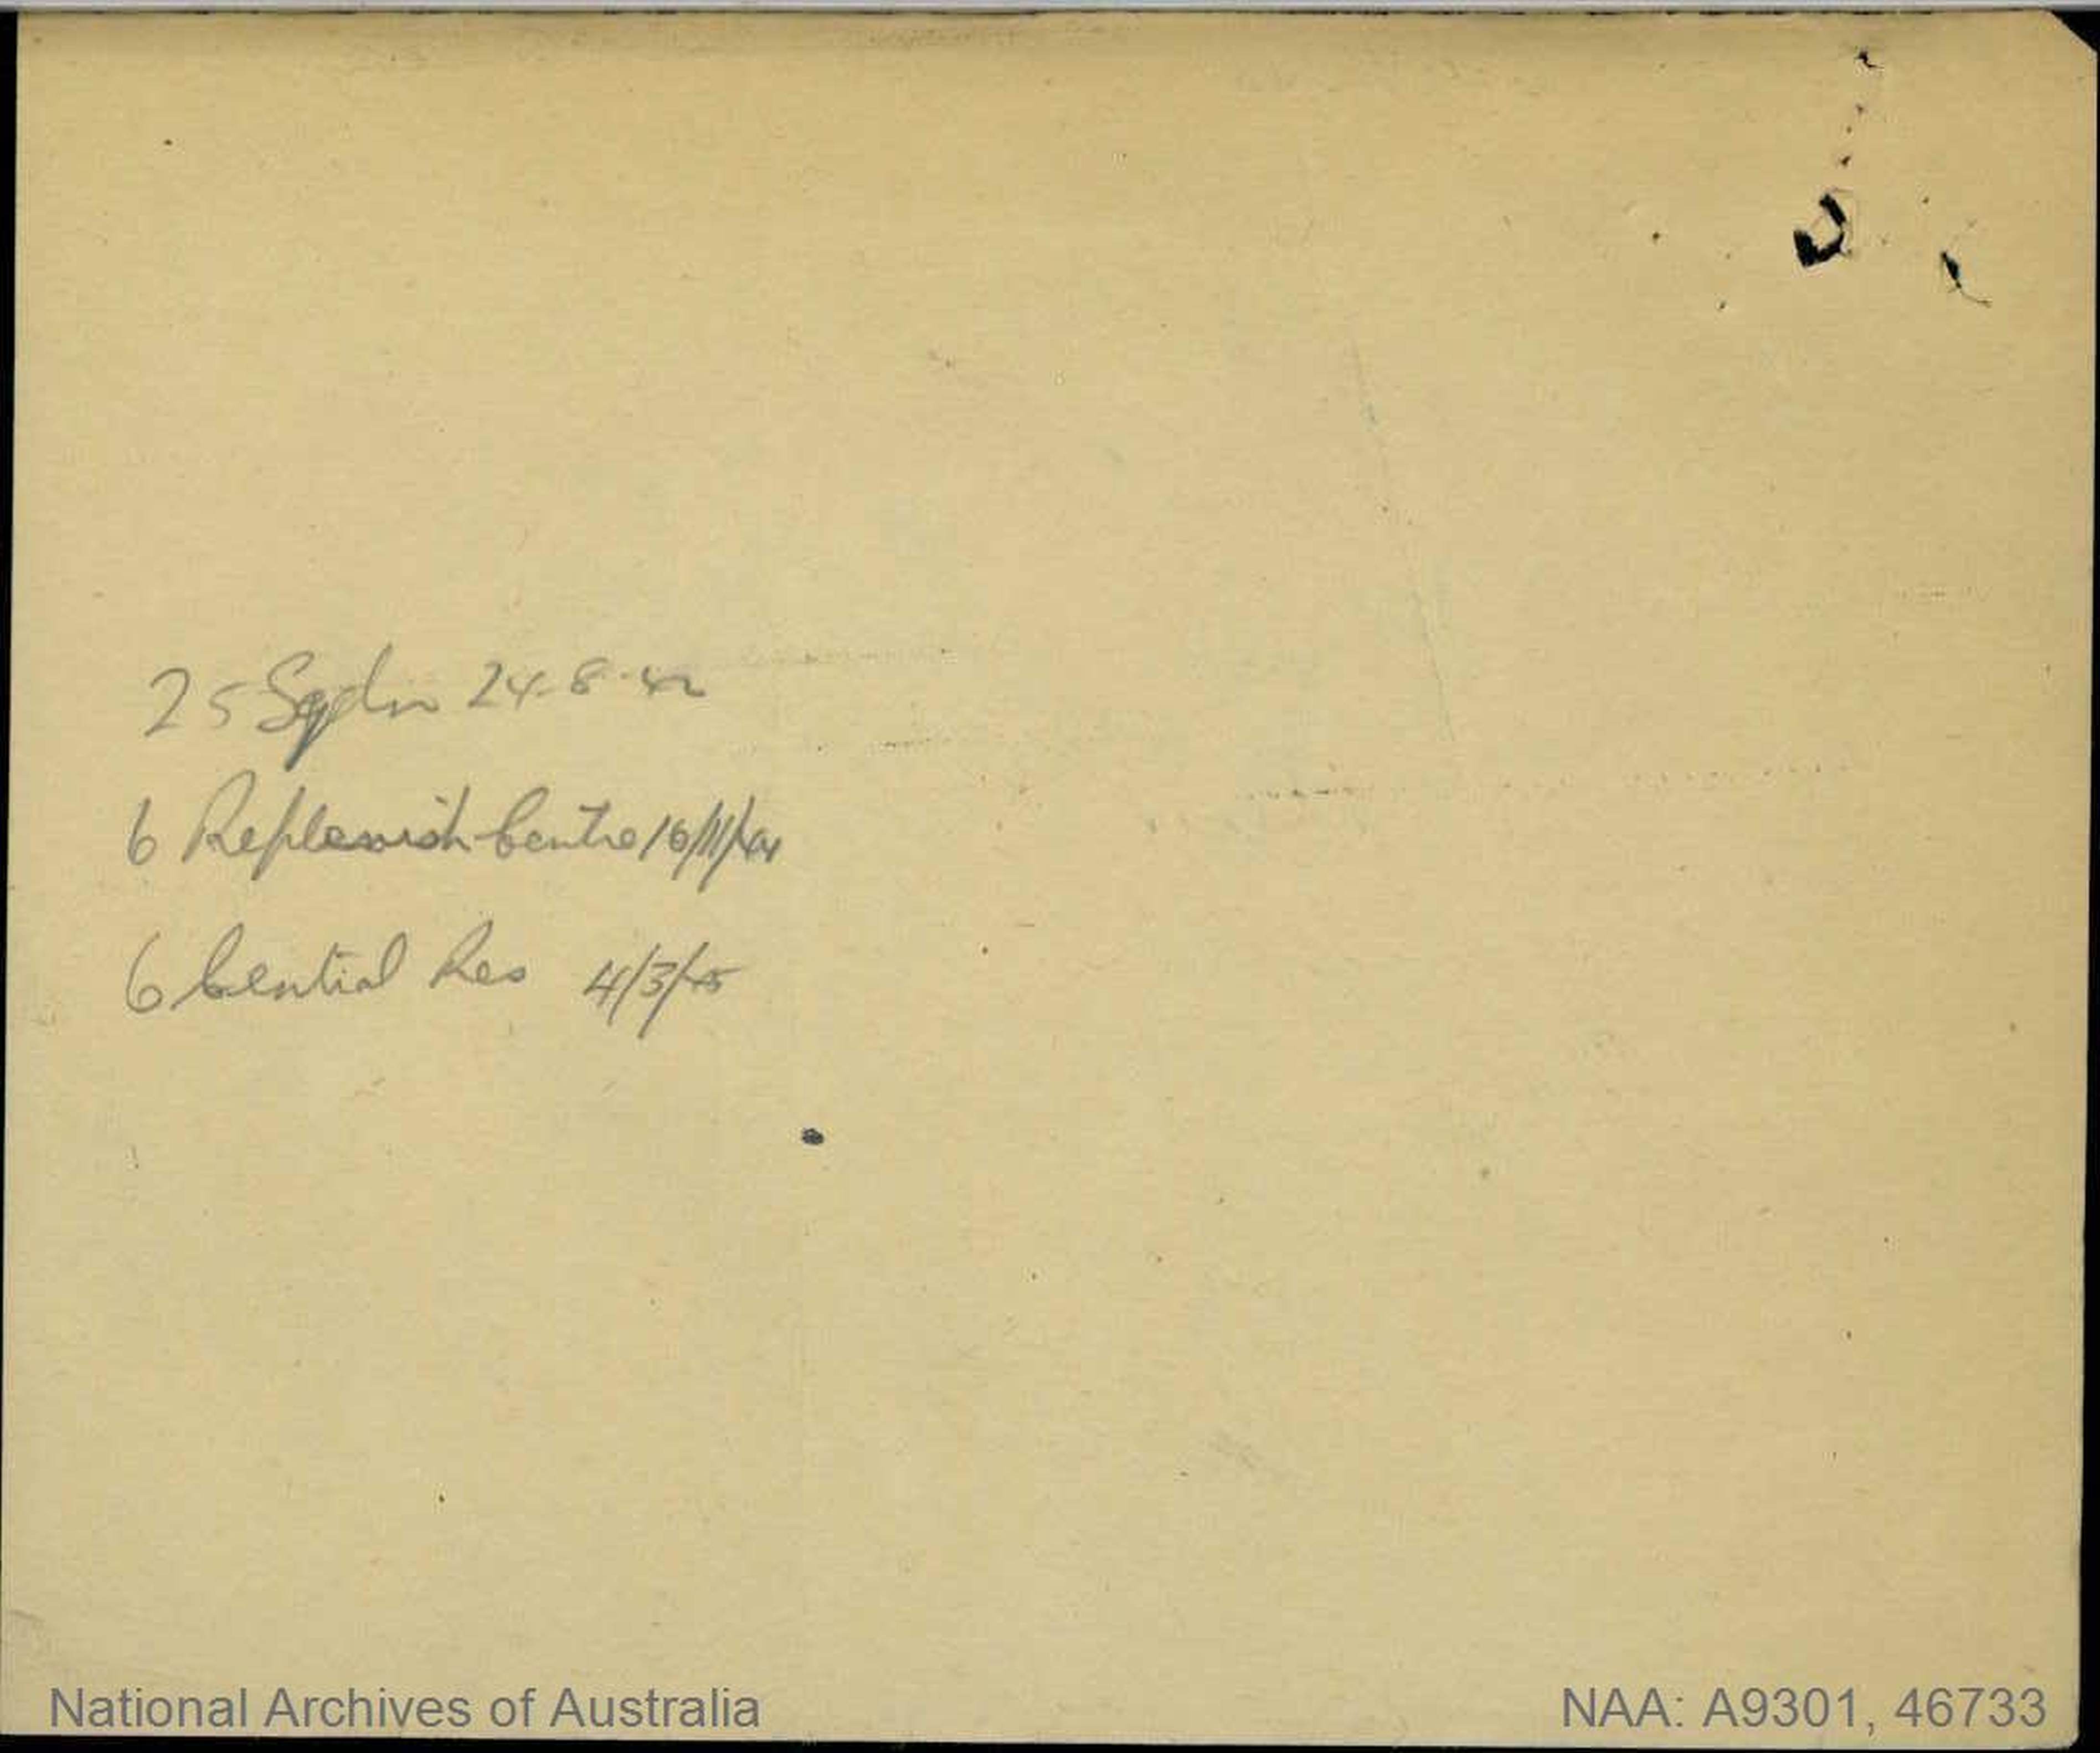 25 Sqdn 24.8.42
6 Replenish Centre 16/11/44
6 Central Res 4/3/45
National Archives of Australia
NAA: A9301, 46733